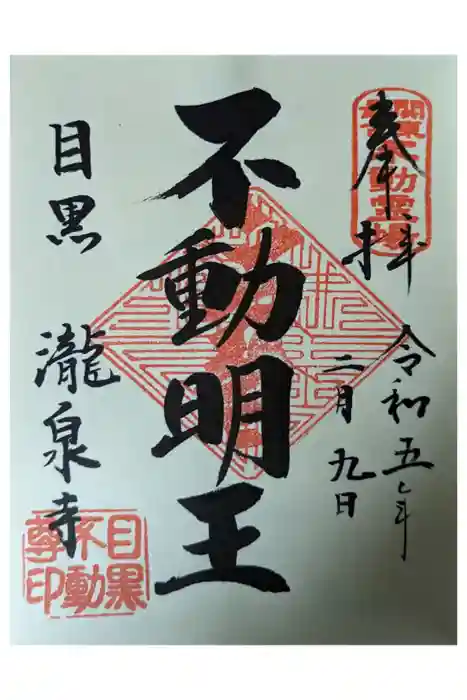 奉拝
令和五年
二月九日
不動明王
目黒
瀧泉寺
目黒
不動
尊印